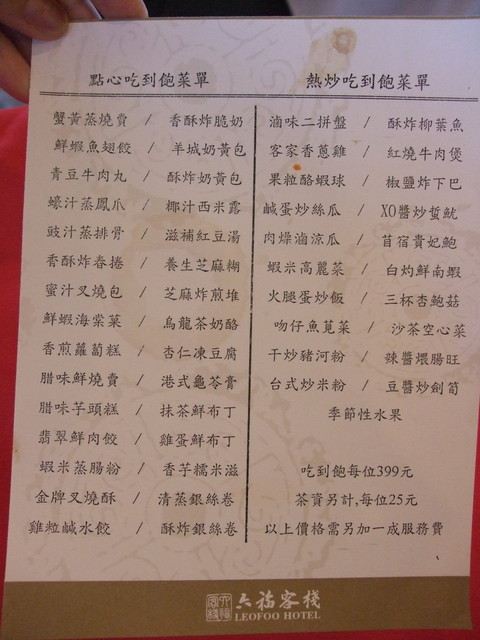 點心吃到飽菜單
蟹黃蒸燒賣 / 香酥炸脆奶
鮮蝦魚翅餃 / 羊城奶黃包
青豆牛肉丸 / 酥炸奶黃包
蠔汁蒸鳳爪 / 椰汁西米露
豉汁蒸排骨 / 滋補紅豆湯
香酥炸春捲 / 養生芝麻糊
蜜汁叉燒包 / 芝麻炸煎堆
鮮蝦海棠菓 / 烏龍茶奶酪
香煎蘿蔔糕 / 杏仁凍豆腐
腊味鮮燒賣 / 港式龜苓膏
腊味芋頭糕 / 抹茶鮮布丁
翡翠鮮肉餃 / 雞蛋鮮布丁
蝦米蒸腸粉 / 香芋糯米滋
金牌叉燒酥 / 清蒸銀絲卷
雞粒鹹水餃 / 酥炸銀絲卷
熱炒吃到飽菜單
滷味二拼盤 / 酥炸柳葉魚
客家香蔥雞 / 紅燒牛肉煲
果粒酪蝦球 / 椒鹽炸下巴
鹹蛋炒絲瓜 / XO醬炒蜇魷
肉燥滷涼瓜 / 苜宿貴妃鮑
蝦米高麗菜 / 白灼鮮南蝦
火腿蛋炒飯 / 三杯杏鮑菇
吻仔魚莧菜 / 沙茶空心菜
干炒豬河粉 / 辣醬煨腸旺
台式炒米粉 / 豆醬炒劍筍
季節性水果
吃到飽每位399元
茶資另計,每位25元
以上價格需另加一成服務費
六福客棧
LEOFOO HOTEL